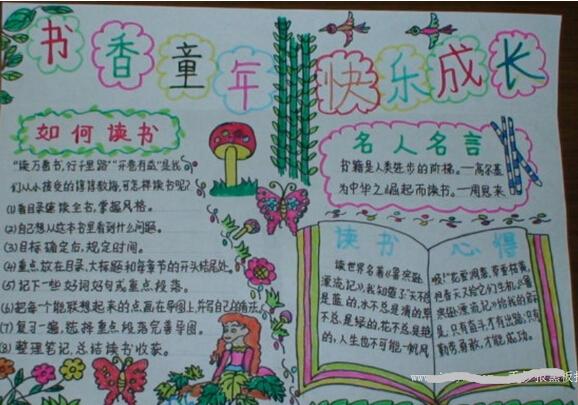 书香童年 快乐成长
如何读书
“读万卷书,行千里路”“开卷有益”是我
们从小接受的谆谆教诲,可怎样读书呢?
(1)看目录速读全书,掌握风格。
(2)自己想从这本书里看到什么问题。
(3)目标确定后,规定时间。
(4)重点放在目录、大标题和每章节的开头结尾处。
(5)记下一些好词好句或重点段落。
(6)把每个能联想起来的点画在导图上,并写自己的看法。
(7)复习一遍,选择重点段落完善导图。
(8)整理笔记,总结读书收获。
名人名言
书籍是人类进步的阶梯。—高尔基
为中华之崛起而读书。—周恩来
读书
读世界名著《鲁宾逊
漂流记》我知道了:天不总
是蓝的,水不总是清的,草
不总是绿的,花不总是艳
的,人生也不可能一帆风
心得
顺!花要凋零,草要枯黄,
但春天又给它们生机。《鲁
滨逊漂流记》给我的启示
是:只有奋斗才有出路,只有
勤劳勇敢,才能成功。
www.